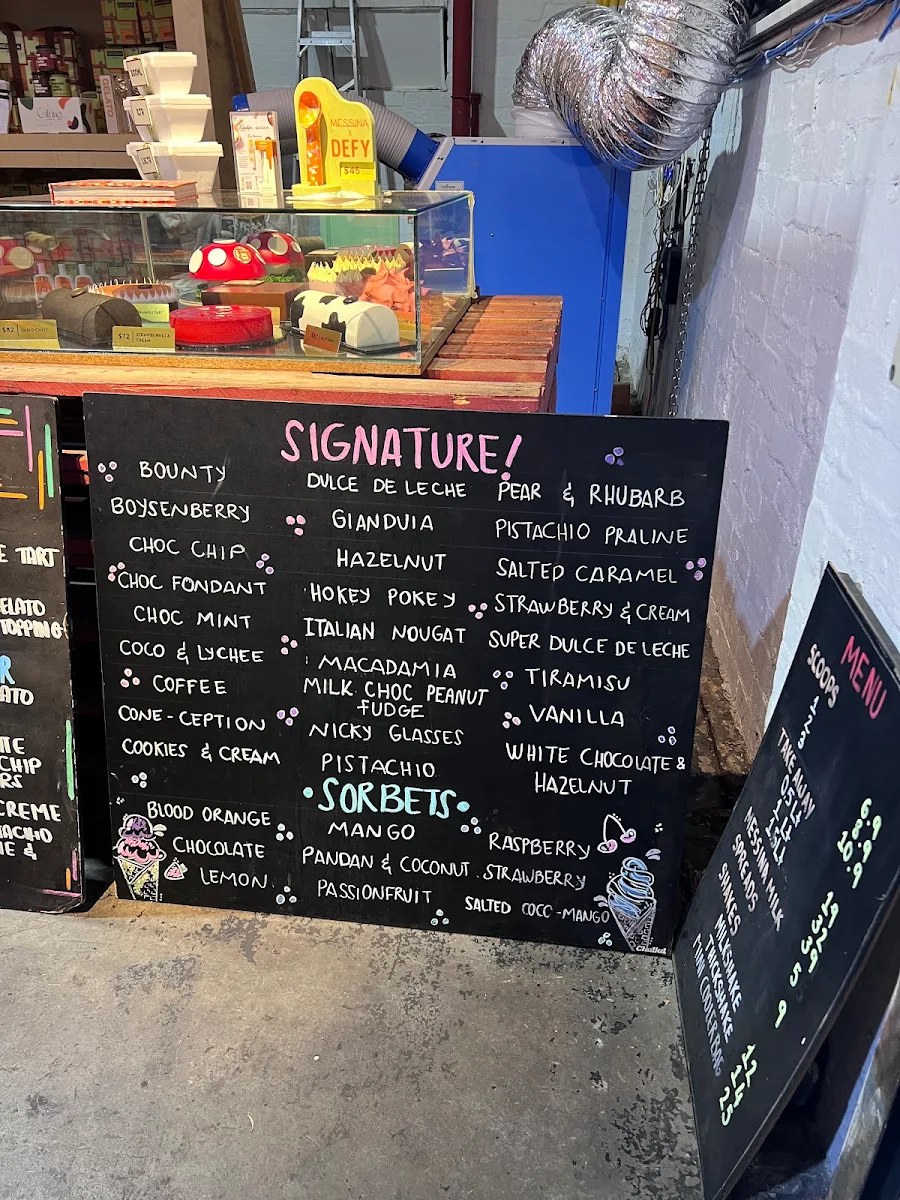 500ML
GELATO
MESSINA
X
DEFY
$45
$82
$72
STRAWBERRIES &
CREAM
SIGNATURE!
BOUNTY
BOYSENBERRY
CHOC CHIP
CHOC FONDANT
CHOC MINT
COCO & LYCHEE
COFFEE
CONE-CEPTION
COOKIES & CREAM
DULCE DE LECHE
GIANDUIA
HAZELNUT
HOKEY POKEY
ITALIAN NOUGAT
MACADAMIA
MILK CHOC PEANUT
FUDGE
NICKY GLASSES
PISTACHIO
PEAR & RHUBARB
PISTACHIO PRALINE
SALTED CARAMEL
STRAWBERRY & CREAM
SUPER DULCE DE LECHE
TIRAMISU
VANILLA
WHITE CHOCOLATE &
HAZELNUT
SORBETS
BLOOD ORANGE
CHOCOLATE
LEMON
MANGO
PANDAN & COCONUT
PASSIONFRUIT
RASPBERRY
STRAWBERRY
SALTED COCO-MANGO
E TART
ELATO
TOPPING
R
ATO
TE
CHIP
RS
CREME
TACHIO
ME &
MENU
SCOOPS
1
2
3
TAKE AWAY
0.5L
1L
1.5L
MESSINA MILK
SPREADS
SHAKES
MILKSHAKE
THICKSHAKE
MINI COOLER BAG
12
14
25